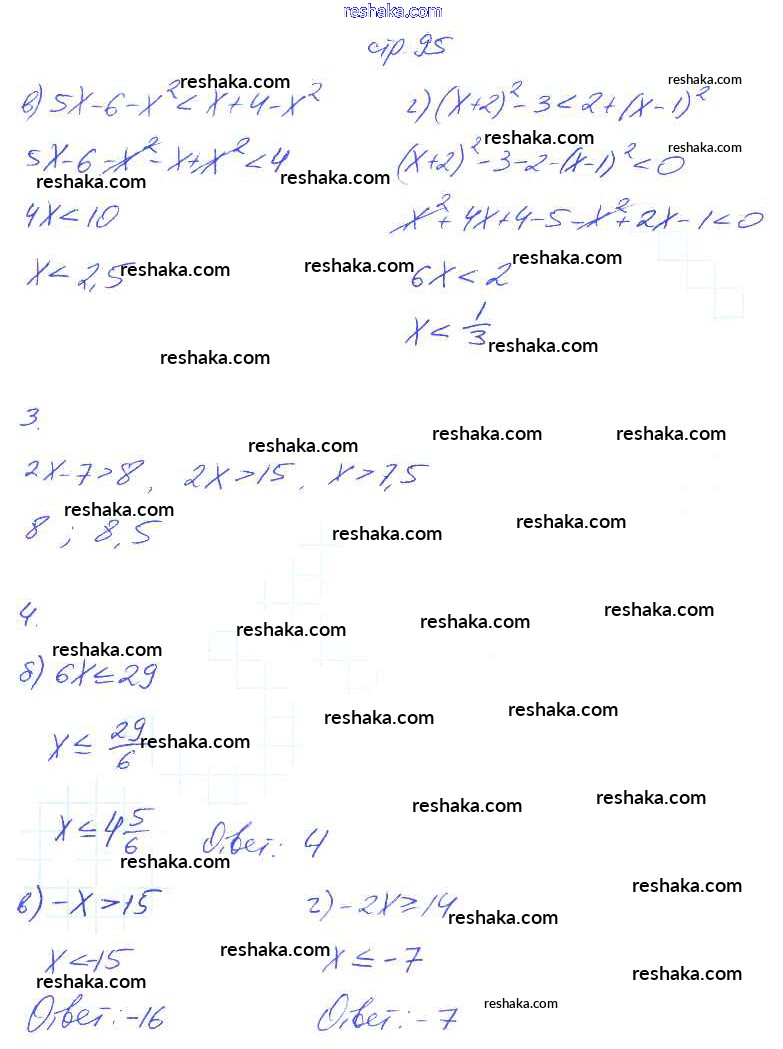 reshaka.com
стр 95
reshaka.com reshaka.com
в) 5x-6-x² < x+4-x² г) (x+2)²-3<2+(x-1)²
reshaka.com reshaka.com
5x-6-x²-x+x²<4 (x+2)²-3-2-(x-1)²<0
reshaka.com reshaka.com
4x<10 x²+4x+4-5-x²+2x-1<0
reshaka.com reshaka.com reshaka.com
x<2,5 6x<2
x<1/3
reshaka.com reshaka.com
3.
reshaka.com reshaka.com reshaka.com
2x-7>8, 2x>15, x>7,5
reshaka.com reshaka.com reshaka.com
8 ; 8,5
4.
reshaka.com reshaka.com reshaka.com reshaka.com
б) 6x≤29
reshaka.com reshaka.com reshaka.com
x≤29/6
reshaka.com reshaka.com
x≤4 5/6 Ответ: 4
reshaka.com reshaka.com
в) -x>15 г) -2x≥14
reshaka.com reshaka.com
x<-15 x≤-7
reshaka.com reshaka.com reshaka.com
Ответ: -16 Ответ: -7